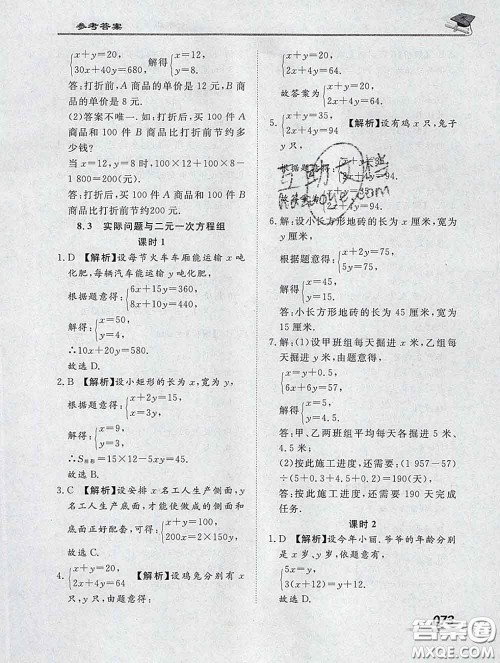 参考答案
{x+y=20,
30x+40y=680, 解得{x=12,
y=8.
答:打折后,A 商品的单价是 12 元,B 商
品的单价是 8 元.
(2)答案不唯一. 如:打折后,买 100 件 A
商品和 100 件 B 商品比打折前节约多
少钱?
当 x=12,y=8 时,100×12+100×8
-1800=200(元)
答:打折后,买 100 件 A 商品和 100 件
B 商品比打折前节约200 元.
8.3 实际问题与二元一次方程组
课时1
1. D 【解析】设每节火车车厢能运输 x 吨化
肥,每辆汽车能运输 y 吨化肥,
根据题意得:{6x+15y=360,
8x+10y=440,
解得:{x=50,
y=4.
∴10x+20y=580.
故选 D.
2. B 【解析】设小矩形的长为 x,宽为 y,
根据题意得:{x+2y=15,
x=3y,
解得:{x=9,
y=3.
∴S阴影=15×12-5xy=45.
故选 B.
3. C 【解析】设安排 x 名工人生产侧面,y
名工人生产底面,才能使做成的侧面和
底面正好配套,{x+y=100,
200x=2×150y
故选 C.
4. {x+y=20,
2x+4y=64 【解析】设鸡兔分别有 x
只,y 只,由题意可得:
{x+y=20,
2x+4y=64.
故答案为{x+y=20,
2x+4y=64.
5. {x+y=35,
2x+4y=94 【解析】设有鸡 x 只,兔子
y 只,
根据题意得
2x+4y=94.
6. 解:设小长方形地砖的长为 x 厘米,宽
为 y 厘米,
根据题意得:
解得
答:小长方形地砖的长为 45 厘米,宽为
15 厘米.
7. 解:(1)设甲班组每天掘进 x 米,乙班组
每天掘进 y 米,
{x-y=0.5,
5x+6y=57.
解得:{x=5,
y=4.5.
答:甲、乙两班组平均每天各掘进 5
米、4.5米;
(2)按此施工进度,还需要:(1 957-57)
÷(5.5+4.5)=190(天),
答:按此施工进度,还需要 190 天完成
任务.
课时2
1. D 【解析】设今年小丽、爷爷的年龄分别
是 x 岁、y 岁,可得:
{5x=y,
故选 D.
073
答案圈
MXQE.COM